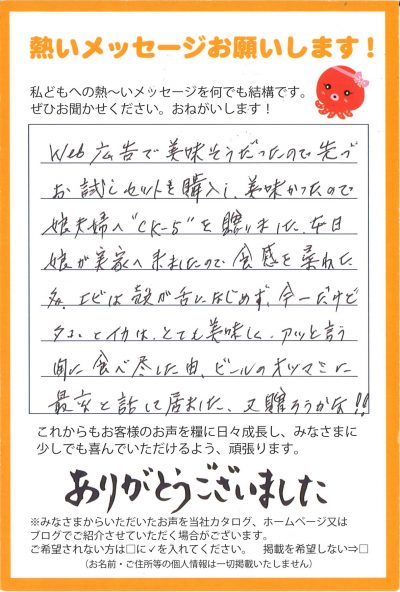 熱いメッセージお願いします！
私どもへの熱〜いメッセージを何でも結構です。
ぜひお聞かせください。おねがいします！
Web広告で美味そうだったので先づ
お試しセットを購入し、美味かったので
娘夫婦へ"CK-5"を贈りました。本日
娘が実家へ来ましたので食感を尋ねた
処、エビは殻が舌になじめず、今一だけど
タコとイカは、とても美味しく、アッと言う
間に食べ尽した由、ビールのオツマミに
最高と話して居ました、又贈ろうかな!!
これからもお客様のお声を糧に日々成長し、みなさまに
少しでも喜んでいただけるよう、頑張ります。
ありがとうございました
※みなさまからいただいたお声を当社カタログ、ホームページ又は
ブログでご紹介させていただく場合がございます。
ご希望されない方は□に✓を入れてください。　掲載を希望しない⇒□
（お名前・ご住所等の個人情報は一切掲載いたしません）